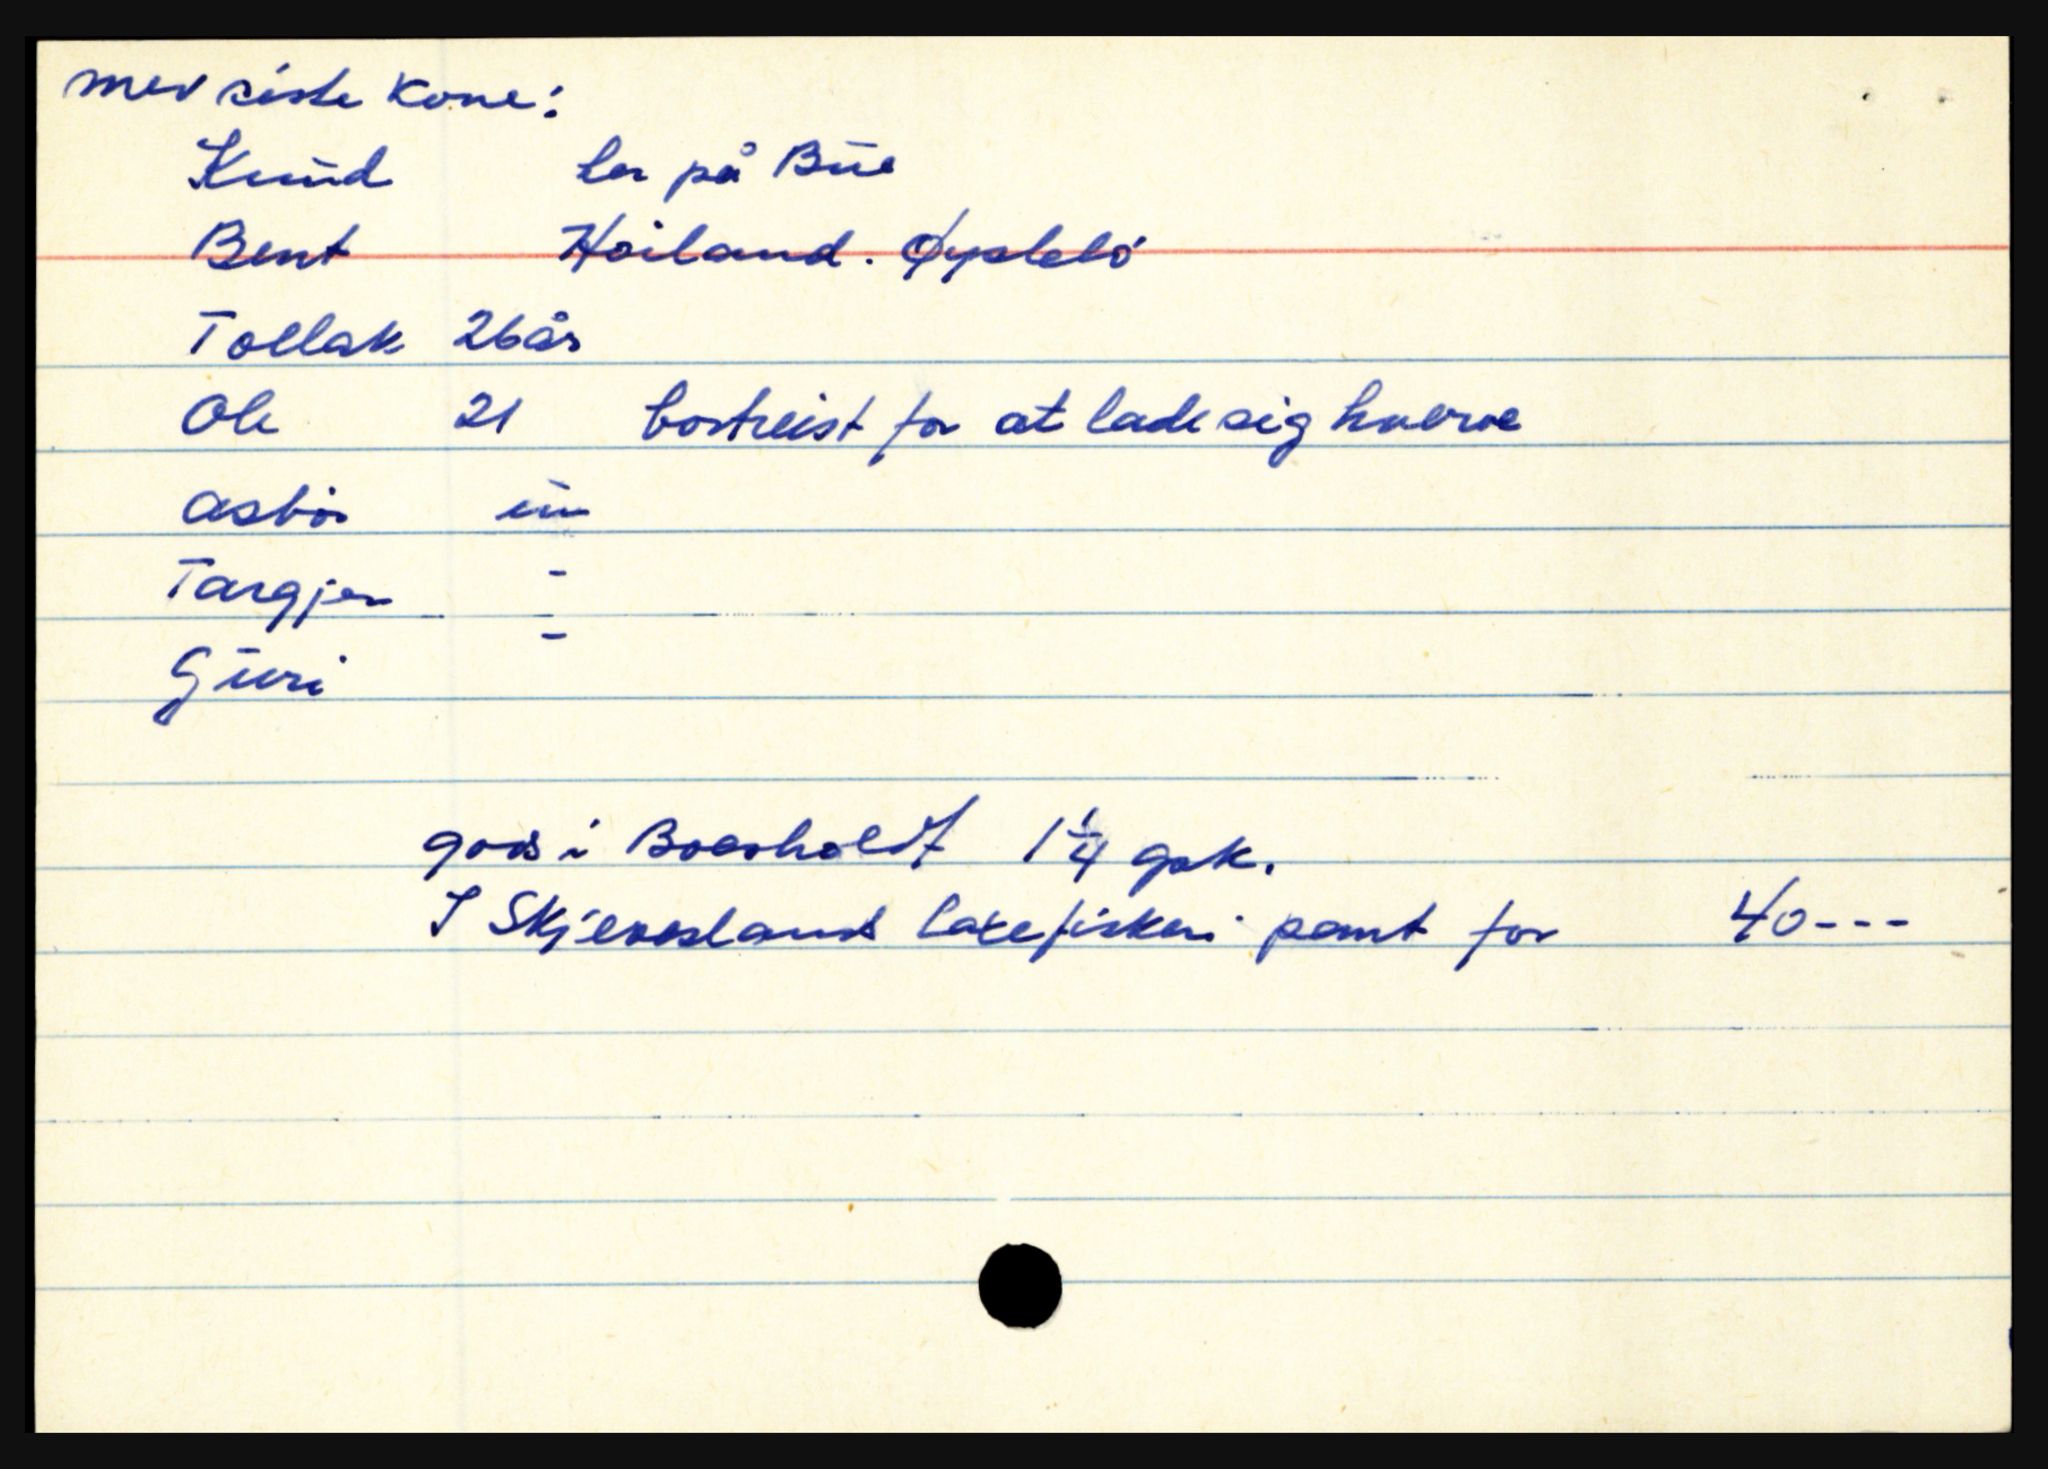 med siste kone:
Knud bor på Bue
Bent Høiland. Øyslebö
Tollak 26 år
Ole 21 bortreist for at lade sig hverve
Asbör um
Targjer -
Guri -
gods i Boesholdt 1 1/4 gsk.
I Skjevesland laxefiskeri pant for 40---